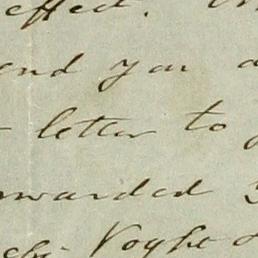 effect.
end you a
letter to
warded
Voght